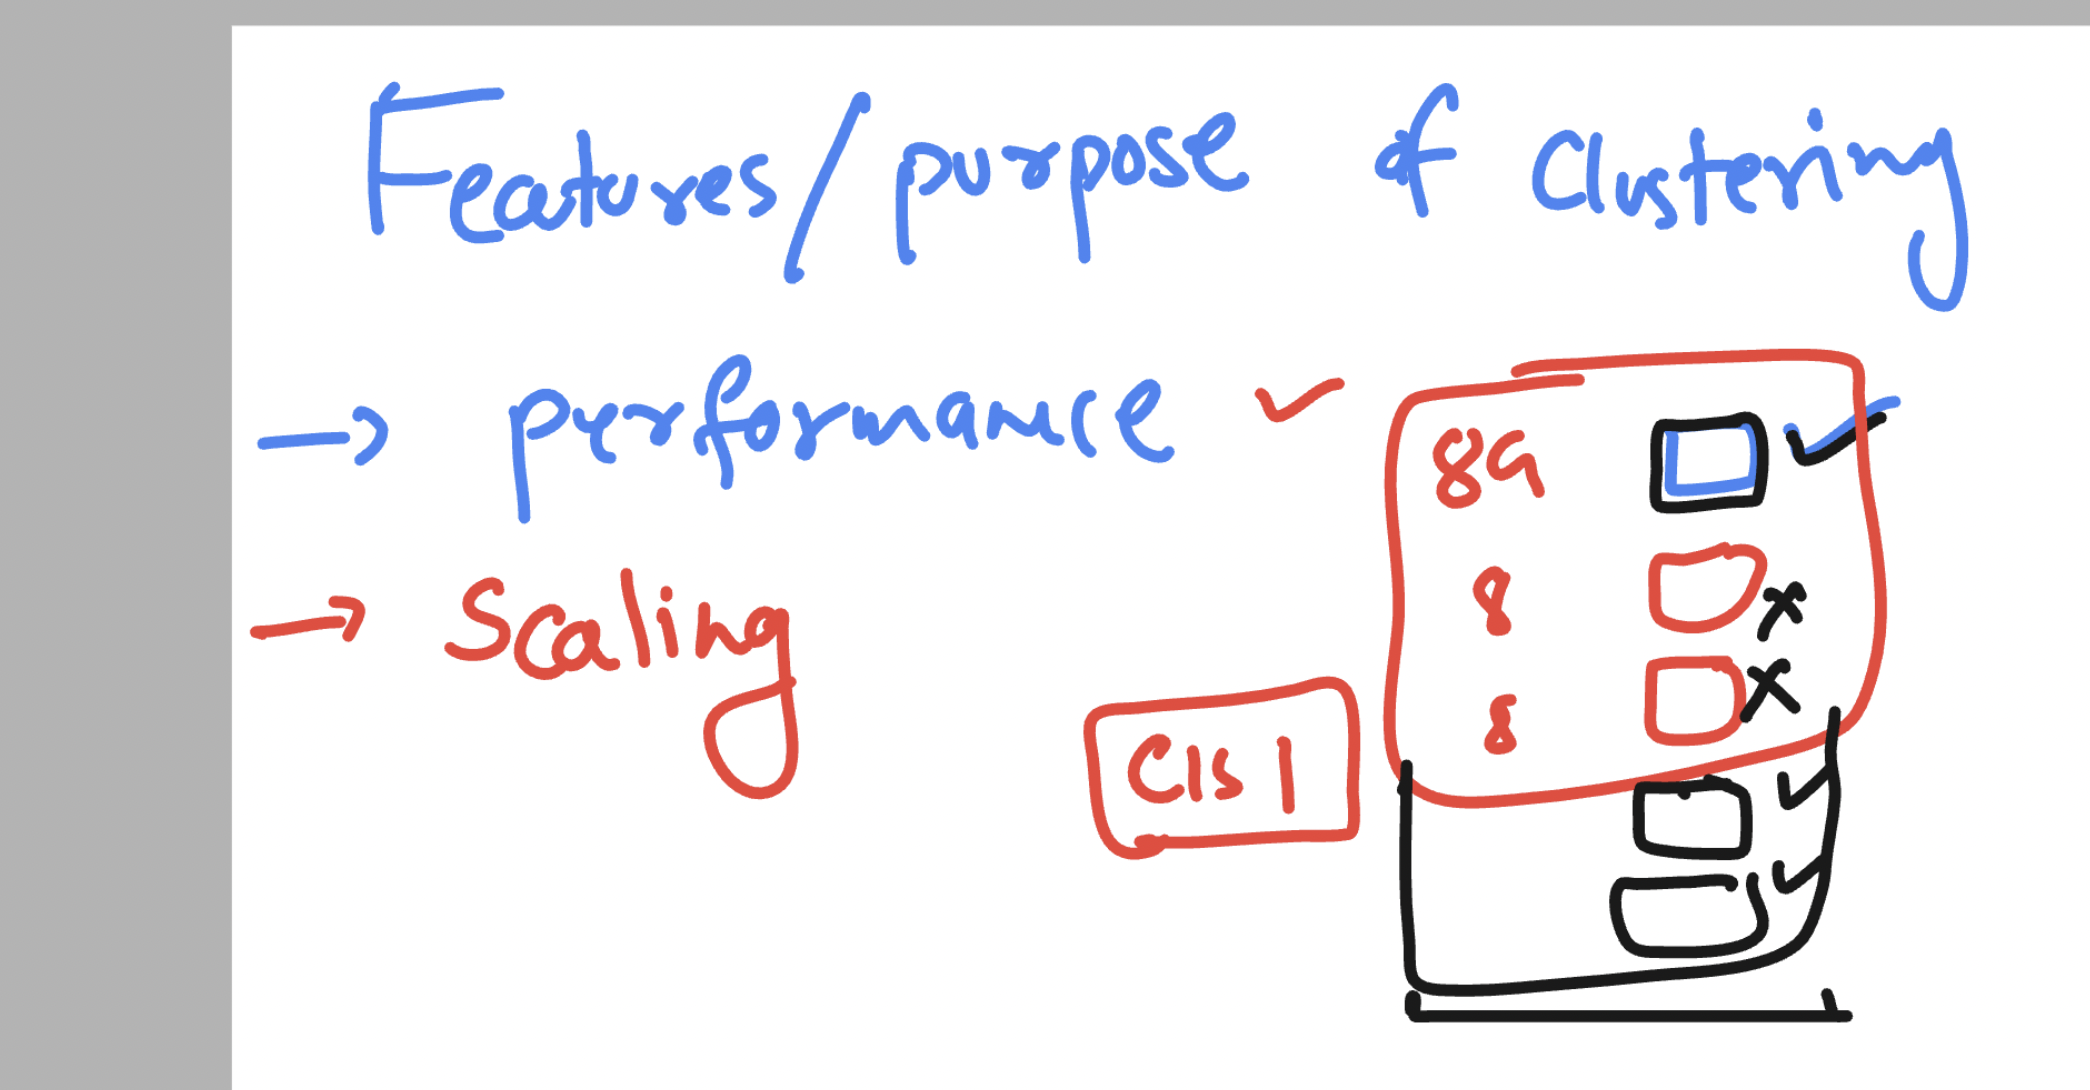 Features/purpose of Clustering
→ performance ✓
8G
8
→ Scaling
8
Cls 1